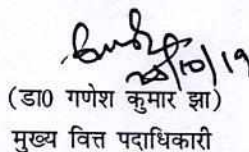 25/10/19
(डा0 गणेश कुमार झा)
मुख्य वित्त पदाधिकारी